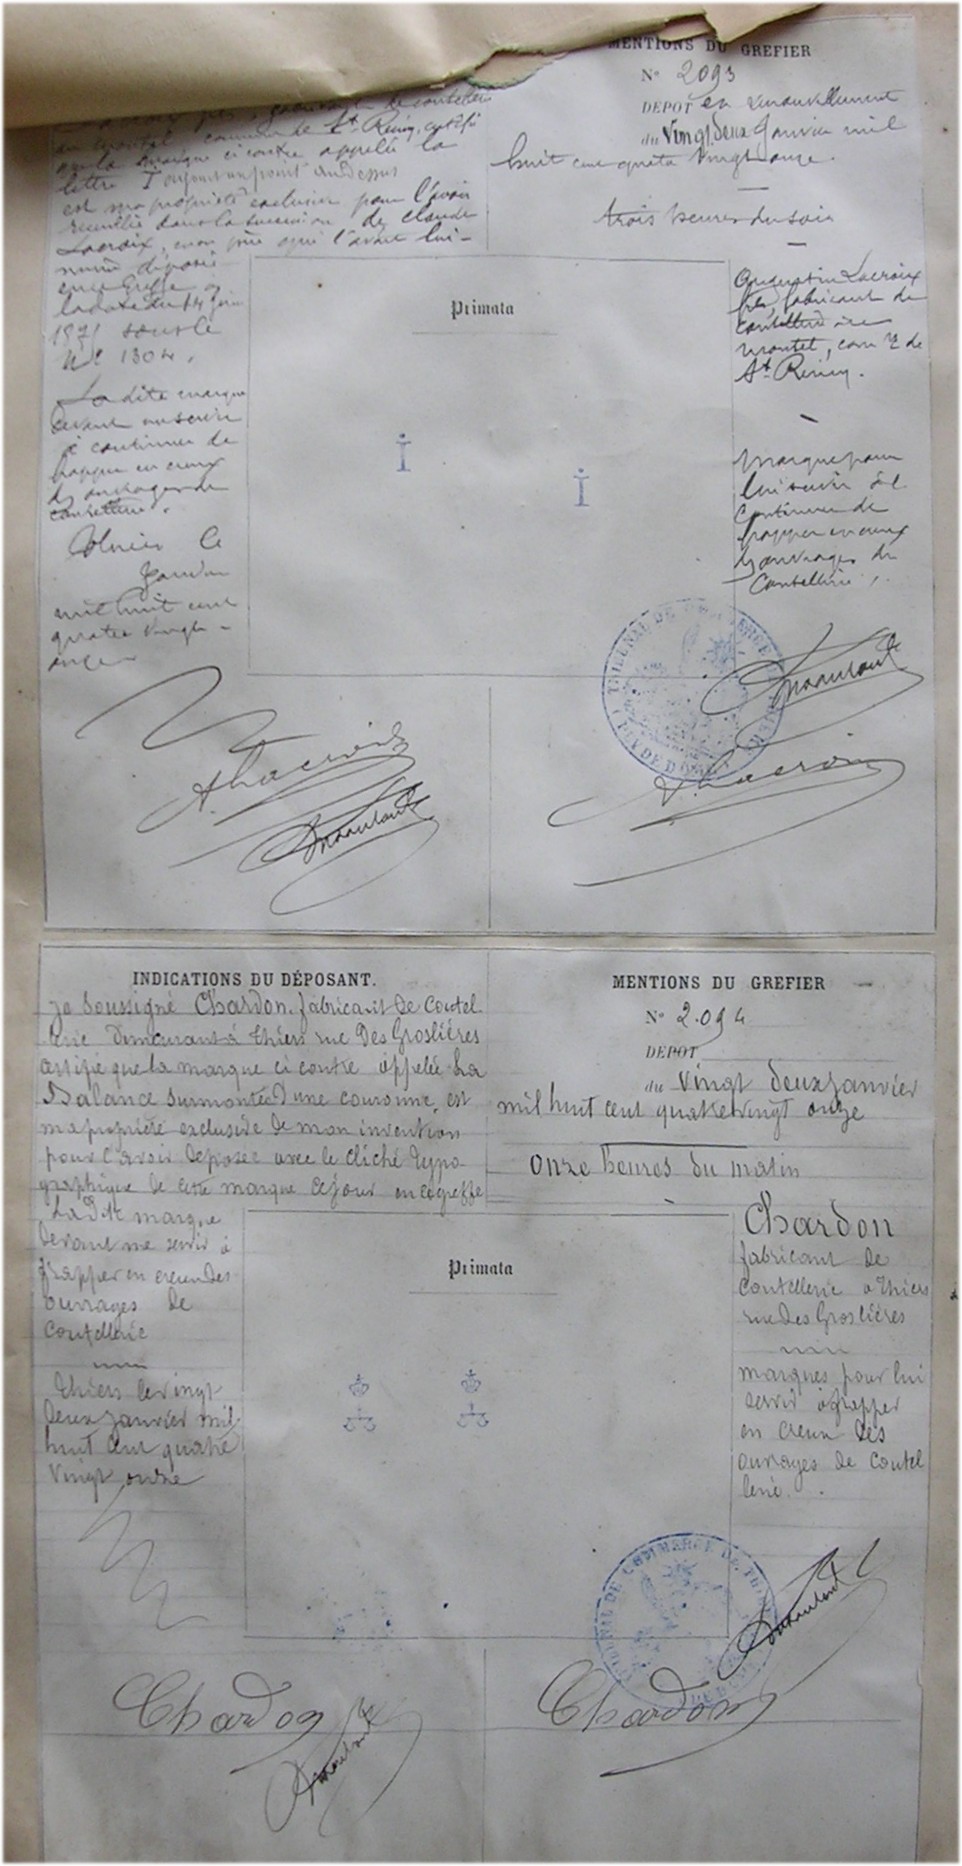 MENTIONS DU GREFIER
N° 2093
DEPOT en renouvellement
du Vingt deux Janvier mil
huit cent quatre vingt onze.
trois heures du soir
commune de St Remy, certifie
que la marque ci contre appelée la
lettre I ayant un point au dessus
est ma propriété exclusive pour l'avoir
recueillie dans la succession de Claude
Lacroix, mon père qui l'avait lui-
même déposée
en ce Greffe
la date du 14 Juin
1871 sous le
N° 1304.
La dite marque
devant me servir
à continuer de
frapper en creux
des ouvrages de
coutellerie.
Thiers le
Janvier
mil huit cent
quatre vingt-
onze
Primata
İ
İ
Augustin Lacroix
fils, fabricant de
coutellerie au
montel, com ne de
St Remy.
Marque pour
lui servir à
continuer de
frapper en creux
des ouvrages de
Coutellerie.
TRIBUNAL DE COMMERCE THIERS
PUY DE DOME
A. Lacroix
A. Lacroix
INDICATIONS DU DÉPOSANT.
Je soussigné Chardon, fabricant de Coutel
lerie demeurant à thiers rue Des Groslières
certifie que la marque ci contre appelée La
Balance surmontée d'une couronne, est
ma propriété exclusive de mon invention
pour l'avoir déposée avec le cliché typo
graphique de cette marque ce jour en ce greffe
La dite marque
devant me servir à
frapper en creux des
ouvrages de
Coutellerie
thiers le vingt
deux Janvier mil
huit cent quatre
vingt onze
MENTIONS DU GREFIER
N° 2.094
DEPOT
du Vingt deux Janvier
mil huit cent quatre vingt onze
onze heures du matin
Primata
Chardon
fabricant de
Coutellerie à thiers
rue des Groslières
marques pour lui
servir à frapper
en creux des
ouvrages de coutel
lerie.
TRIBUNAL DE COMMERCE DE THIERS
Chardon
Chardon